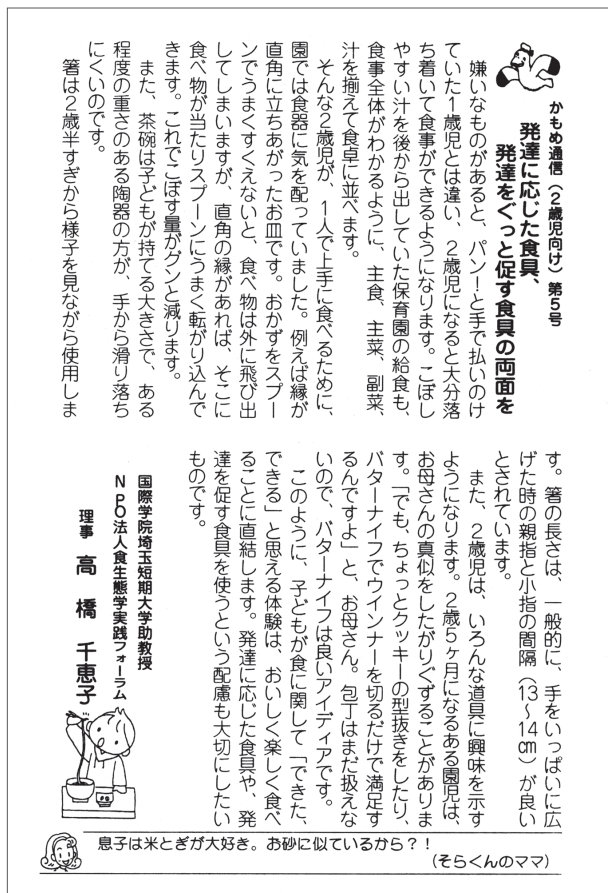 かもめ通信（２歳児向け）第５号
発達に応じた食具、
発達をぐっと促す食具の両面を
嫌いなものがあると、パン！と手で払いのけ
ていた１歳児とは違い、２歳児になると大分落
ち着いて食事ができるようになります。こぼし
やすい汁を後から出していた保育園の給食も、
食事全体がわかるように、主食、主菜、副菜、
汁を揃えて食卓に並べます。
そんな２歳児が、１人で上手に食べるために、
園では食器に気を配っていました。例えば縁が
直角に立ちあがったお皿です。おかずをスプー
ンでうまくすくえないと、食べ物は外に飛び出
してしまいますが、直角の縁があれば、そこに
食べ物が当たりスプーンにうまく転がり込んで
きます。これでこぼす量がグンと減ります。
また、茶碗は子どもが持てる大きさで、ある
程度の重さのある陶器の方が、手から滑り落ち
にくいのです。
箸は２歳半すぎから様子を見ながら使用しま
す。箸の長さは、一般的に、手をいっぱいに広
げた時の親指と小指の間隔（13～14㎝）が良い
とされています。
また、２歳児は、いろんな道具に興味を示す
ようになります。２歳５ヶ月になるある園児は、
お母さんの真似をしたがりぐずることがありま
す。「でも、ちょっとクッキーの型抜きをしたり、
バターナイフでウインナーを切るだけで満足す
るんですよ」と、お母さん。包丁はまだ扱えな
いので、バターナイフは良いアイディアです。
このように、子どもが食に関して「できた、
できる」と思える体験は、おいしく楽しく食べ
ることに直結します。発達に応じた食具や、発
達を促す食具を使うという配慮も大切にしたい
ものです。
国際学院埼玉短期大学助教授
ＮＰＯ法人食生態学実践フォーラム
理事 高橋千恵子
息子は米とぎが大好き。お砂に似ているから？！
（そらくんのママ）